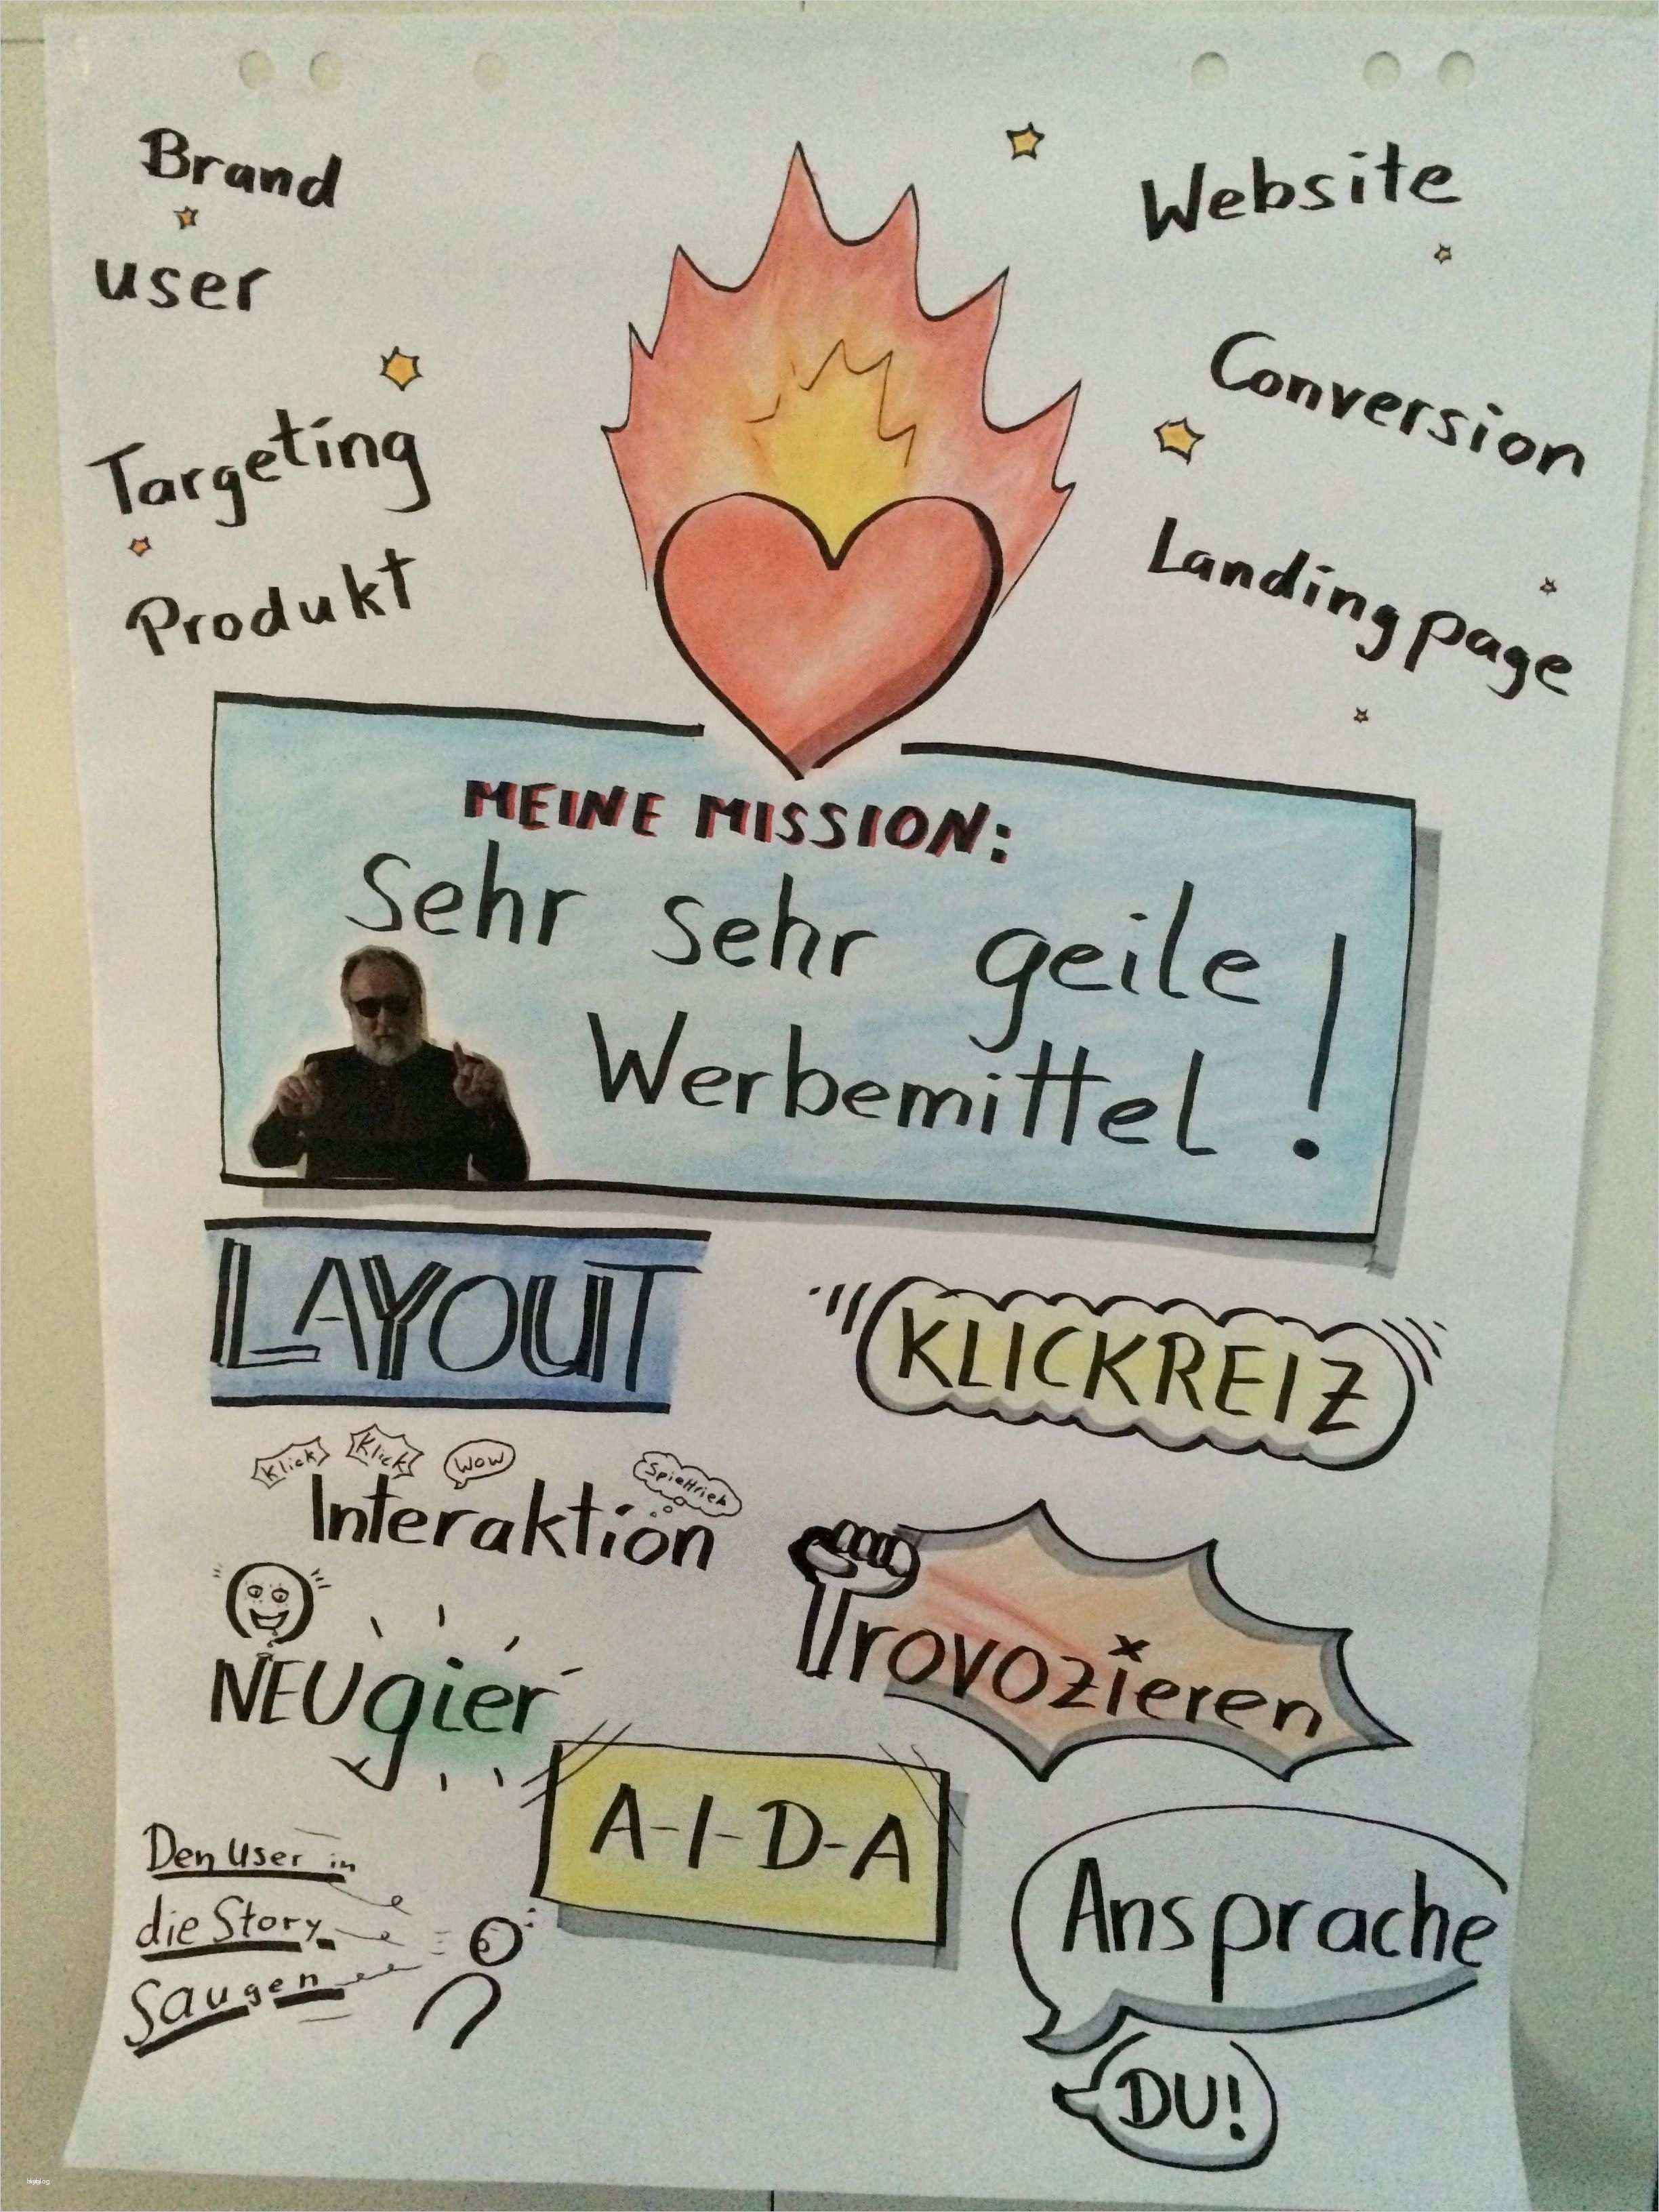 Brand
user
Targeting
Produkt
Website
Conversion
Landingpage
MEINE MISSION:
Sehr sehr geile
Werbemittel!
LAYOUT
KLICKREIZ
Klick Klick WOW Spieltrieb
Interaktion
Provozieren
NEUgier
A-I-D-A
Den User in
die Story
Saugen
Ansprache
DU!